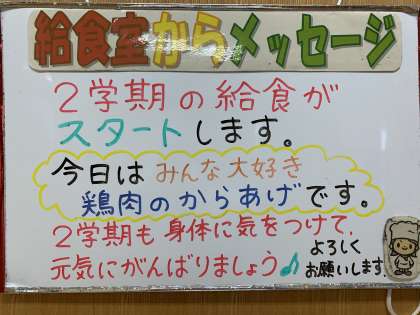 給食室からメッセージ
2学期の給食が
スタートします。
今日はみんな大好き
鶏肉のからあげです。
2学期も身体に気をつけて、
元気にがんばりましょう♪
よろしく
お願いします